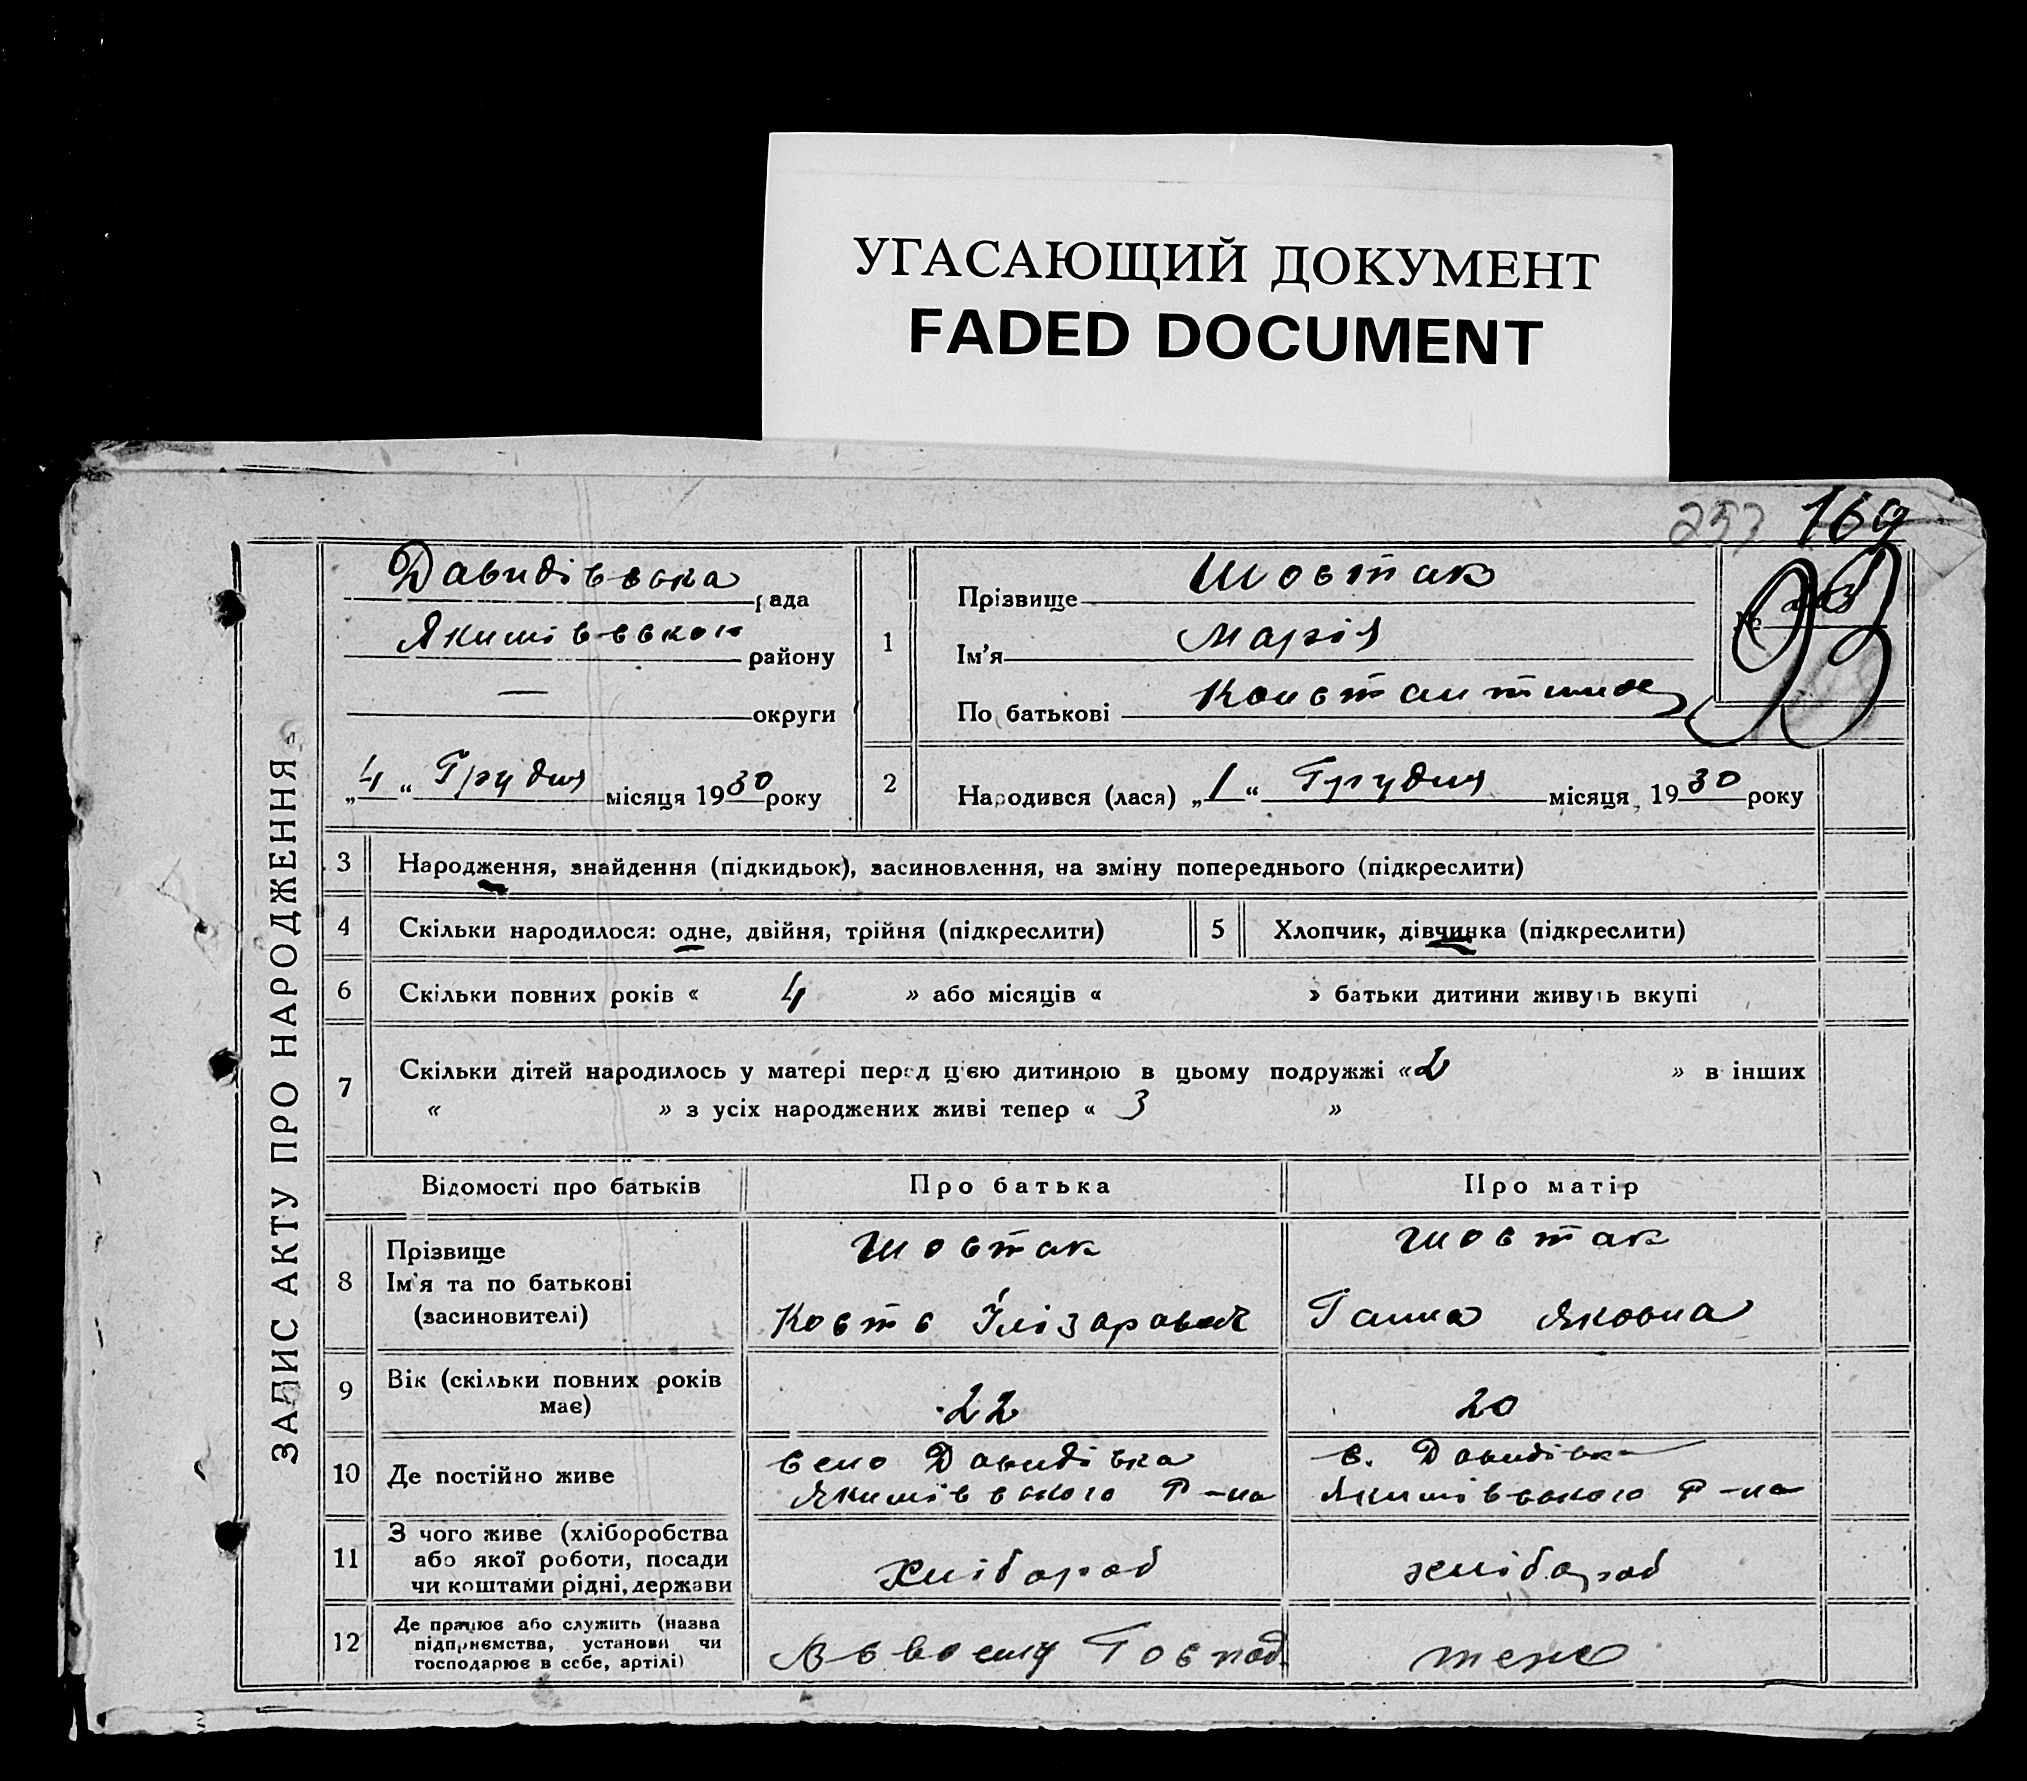 УГАСАЮЩИЙ ДОКУМЕНТ
FADED DOCUMENT
253 169
ЗАПИС АКТУ ПРО НАРОДЖЕННЯ
Давидівська рада
Якимівської району
— округи
„4“ Грудня місяця 1930 року
1
Прізвище Шостак
Ім'я Марія
По батькові
№
93
2 Народився (лася) „1“ Грудня місяця, 1930 року
3 Народження, знайдення (підкидьок), засиновлення, на зміну попереднього (підкреслити)
4 Скільки народилося: одне, двійня, трійня (підкреслити) 5 Хлопчик, дівчинка (підкреслити)
6 Скільки повних років « 4 » або місяців « » батьки дитини живуть вкупі
7 Скільки дітей народилось у матері перед ц'єю дитиною в цьому подружжі « 2 » в інших
« » з усіх народжених живі тепер « 3 »
Відомості про батьків Про батька Про матір
8 Прізвище Шостак Шостак
Ім'я та по батькові
(засиновителі) Ганна Яковна
9 Вік (скільки повних років має) 22 20
10 Де постійно живе село Давидівка с. Давидівка
Якимівського Р-на Якимівського Р-на
11 З чого живе (хліборобства
або якої роботи, посади
чи коштами рідні, держави хлібороб хлібороб
12 Де працює або служить (назва
підприємства, установи чи
господарює в себе, артілі) В своему Господ. теж